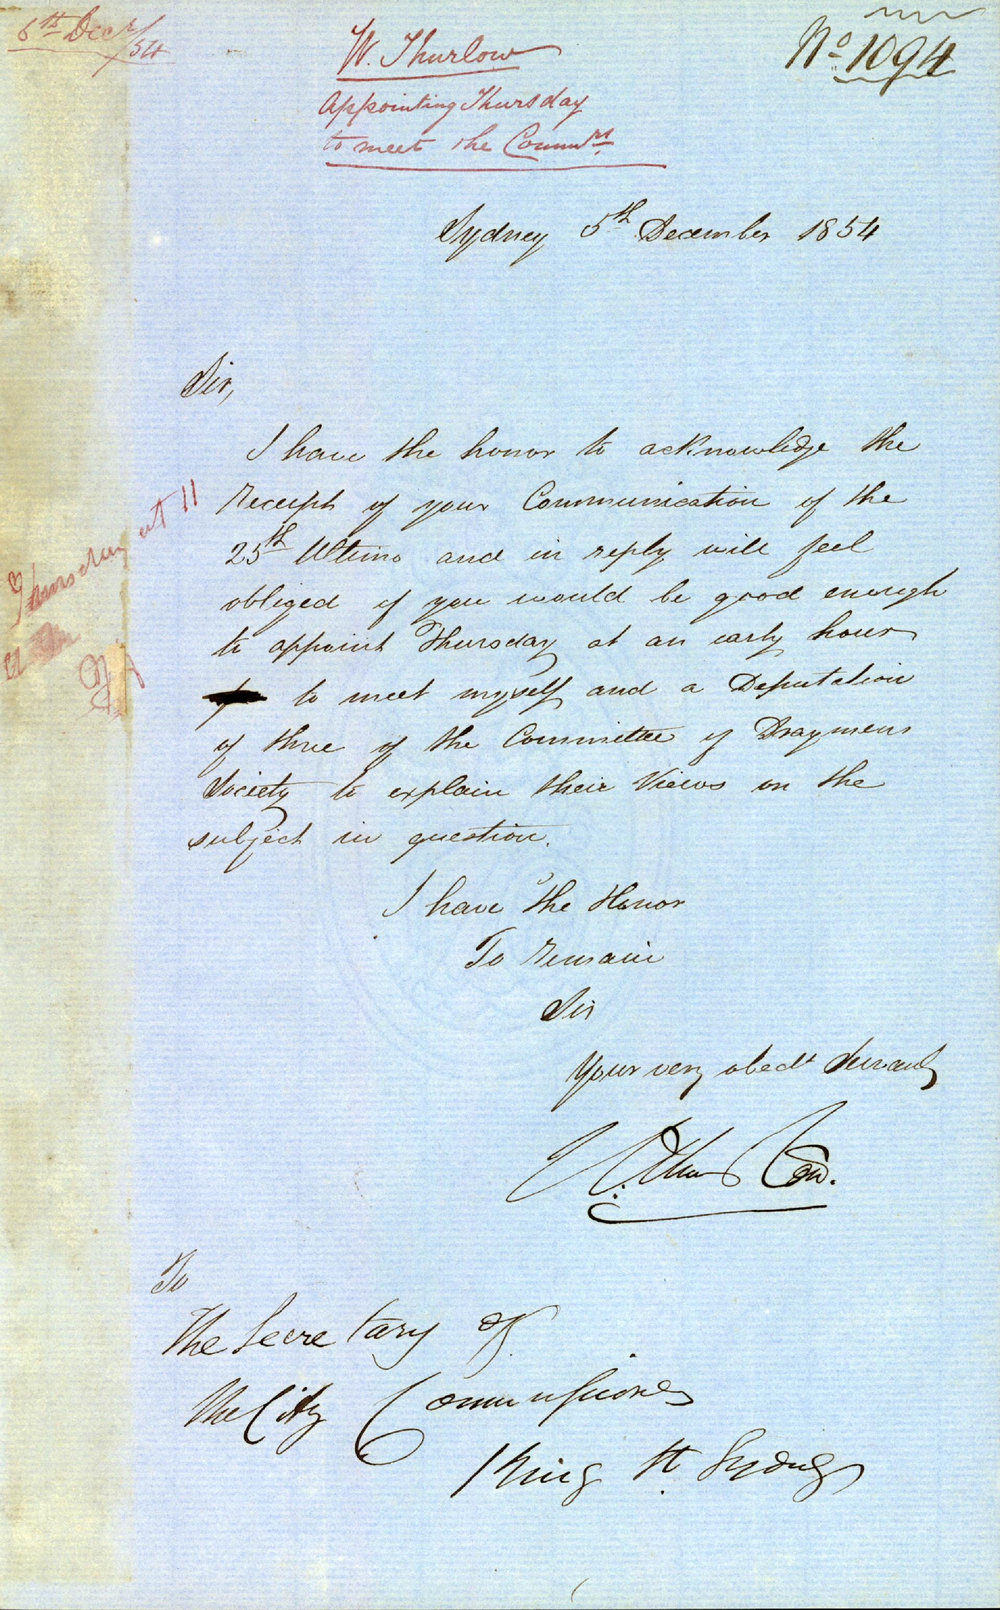 6th Decr/54
W. Thurlow
Appointing Thursday
to meet the Commrs
No. 1094
Sydney 5th December 1854
Sir,
I have the honor to acknowledge the
receipt of your Communication of the
25th Ultimo and in reply will feel
obliged if you would be good enough
to appoint Thursday at an early hour
to meet myself and a Deputation
of three of the Committee of Draymens
Society to explain their Views on the
subject in question.
Thursday at 11
I have the Honor
To Remain
Sir
Your very obedt Servant
W. Thurlow.
To
The Secretary of
The City Commissioners
King St. Sydney